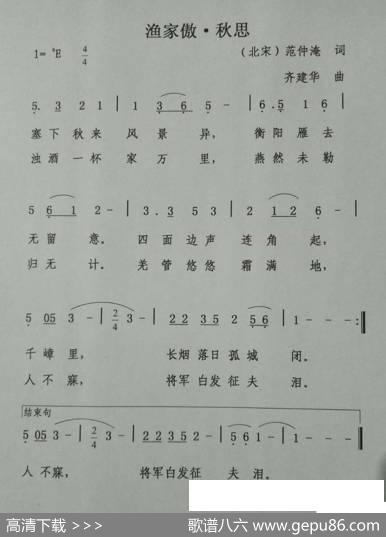 渔家傲·秋思
1=♭E 4/4 （北宋）范仲淹 词
齐建华 曲
5. 3 2 1 | 1 3 6 5 - | 6. 5 1 6 |
塞下秋来 风景异，衡阳雁去
浊酒一杯 家万里，燕然未勒
5 6 1 2 - | 3. 3 5 3 | 2 1 2 6 - |
无留意。四面边声 连角起，
归无计。羌管悠悠 霜满地，
5 05 3 - | 2/4 3 - | 2 2 3 5 2 5 6 | 1 - - - :||
千嶂里，长烟落日孤城 闭。
人不寐，将军白发征夫 泪。
结束句
5 05 3 - | 2/4 3 - | 2 2 3 5 2 - | 5 6 1 - | 1 - ||
人不寐，将军白发征 夫泪。
高清下载 >>> 歌谱八六 www.gepu86.com